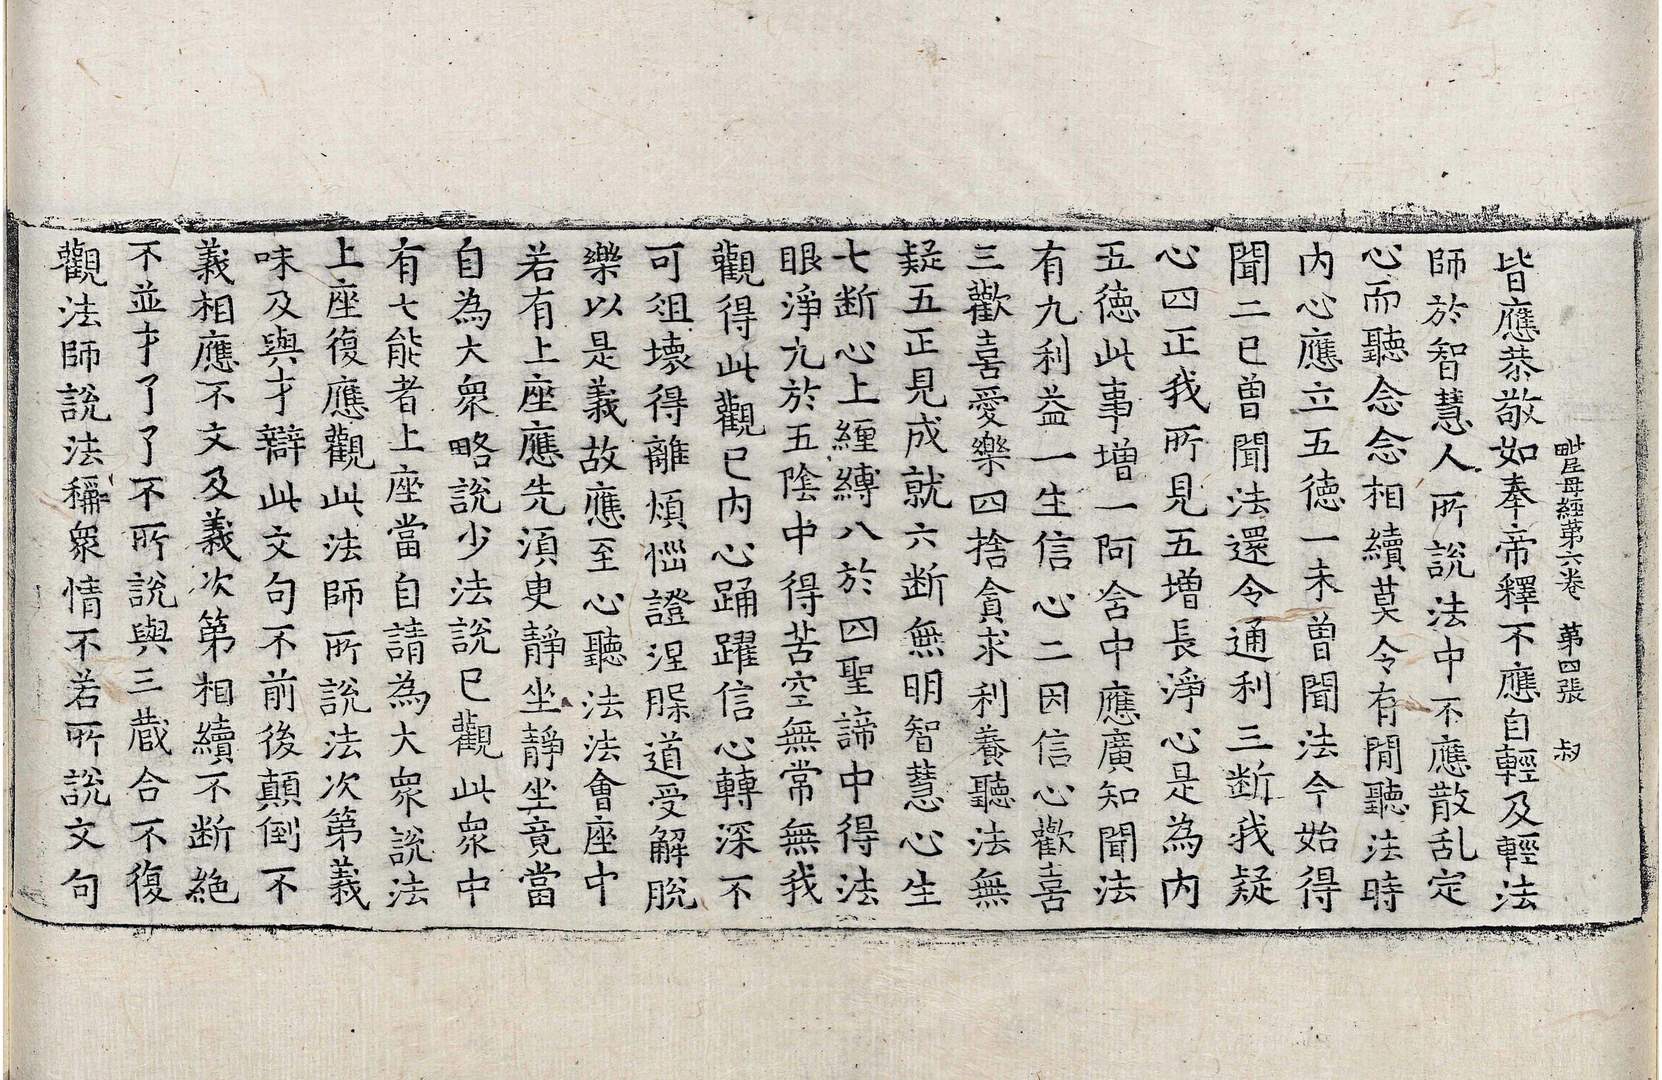 毗尼母經第六卷 第四張 叔
皆應恭敬如奉帝釋不應自輕及輕法
師於智慧人所說法中不應散乱定
心而聽念念相續莫令有閒聽法時
內心應立五德一未曾聞法今始得
聞二已曾聞法還令通利三断我疑
心四正我所見五增長淨心是為內
五德此事增一阿含中應廣知聞法
有九利益一生信心二因信心歡喜
三歡喜愛樂四捨貪求利養聽法無
疑五正見成就六断無明智慧心生
七断心上纏縛八於四聖諦中得法
眼淨九於五陰中得苦空無常無我
觀得此觀已內心踊躍信心轉深不
可爼壞得離煩惱證涅槃道受解脫
樂以是義故應至心聽法法會座中
若有上座應先須更靜坐靜坐竟當
自為大眾略說少法說已觀此眾中
有七能者上座當自請為大眾說法
上座復應觀此法師所說法次第義
味及與才辯此文句不前後顛倒不
義相應不文及義次第相續不断絕
不並才了了不所說與三藏合不復
觀法師說法稱眾情不若所說文句